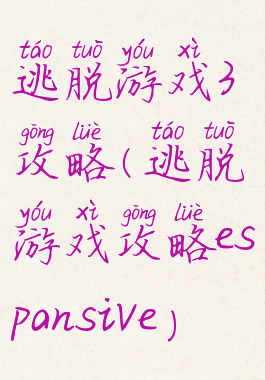 táo tuō yóu xì
逃脱游戏3
gōng lüè táo tuō
攻略(逃脱
yóu xì gōng lüè
游戏攻略es
pansive)